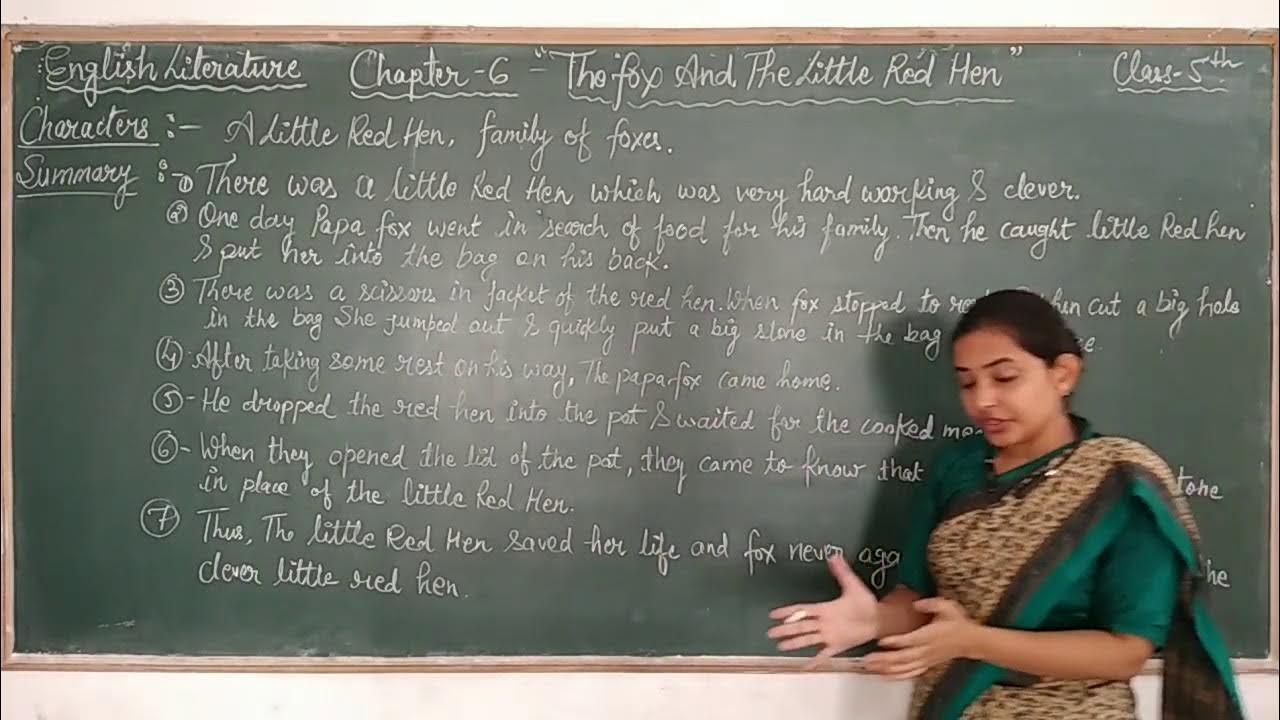 English Literature Chapter-6 - "The fox And The Little Red Hen" Class-5th
Characters :- A Little Red Hen, family of foxes.
Summary :- ① There was a little Red Hen which was very hard working & clever.
② One day Papa fox went in search of food for his family. Then he caught little Red hen
& put her into the bag on his back.
③ There was a scissors in Jacket of the red hen. When fox stopped to cut a big hole
in the bag She jumped out & quickly put a big stone in the bag
④ - After taking some rest on his way, The papa fox came home.
⑤ - He dropped the red hen into the pot & waited for the cooked
⑥ - When they opened the lid of the pot, they came to know that
in place of the little Red Hen.
⑦ Thus, The little Red Hen saved her life and fox never
clever little red hen.